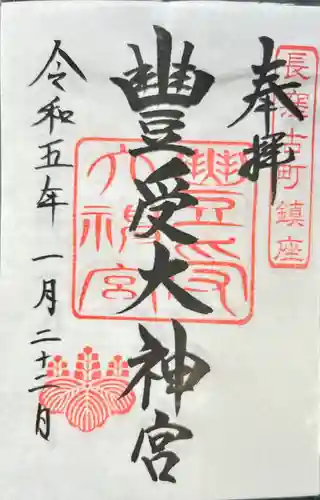 奉拝
長窪古町鎮座
豊受大神宮
豊受大神宮
令和五年 一月二十二日